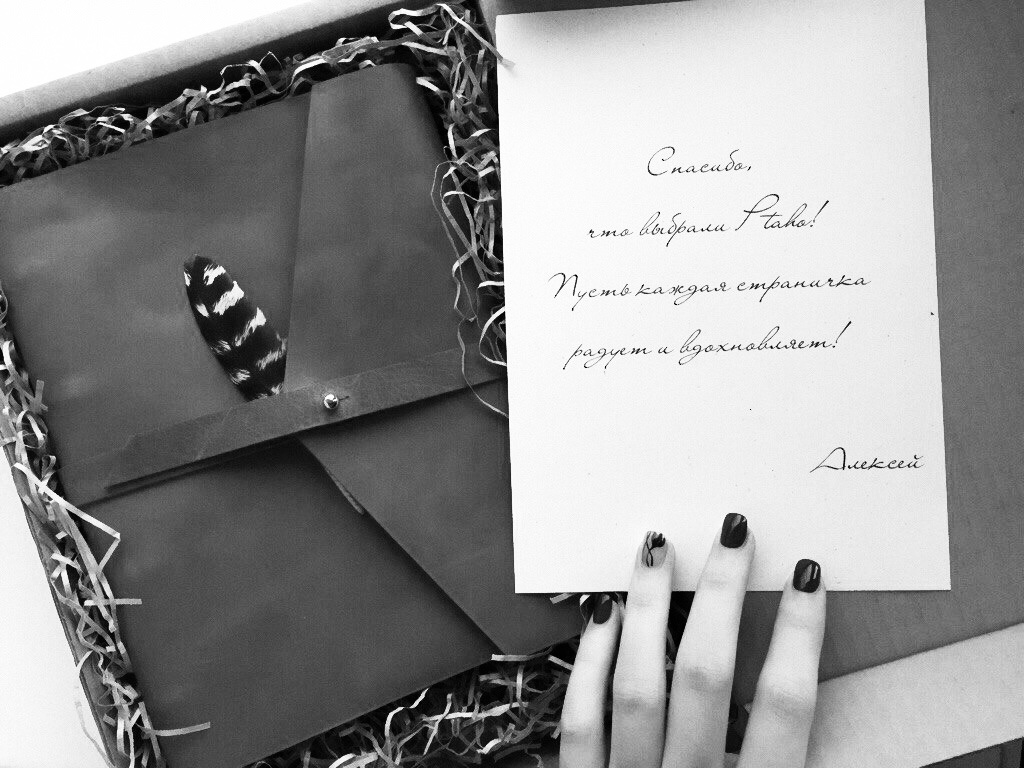 Спасибо,
что выбрали Ptaho!
Пусть каждая страничка
радует и вдохновляет!
Алексей